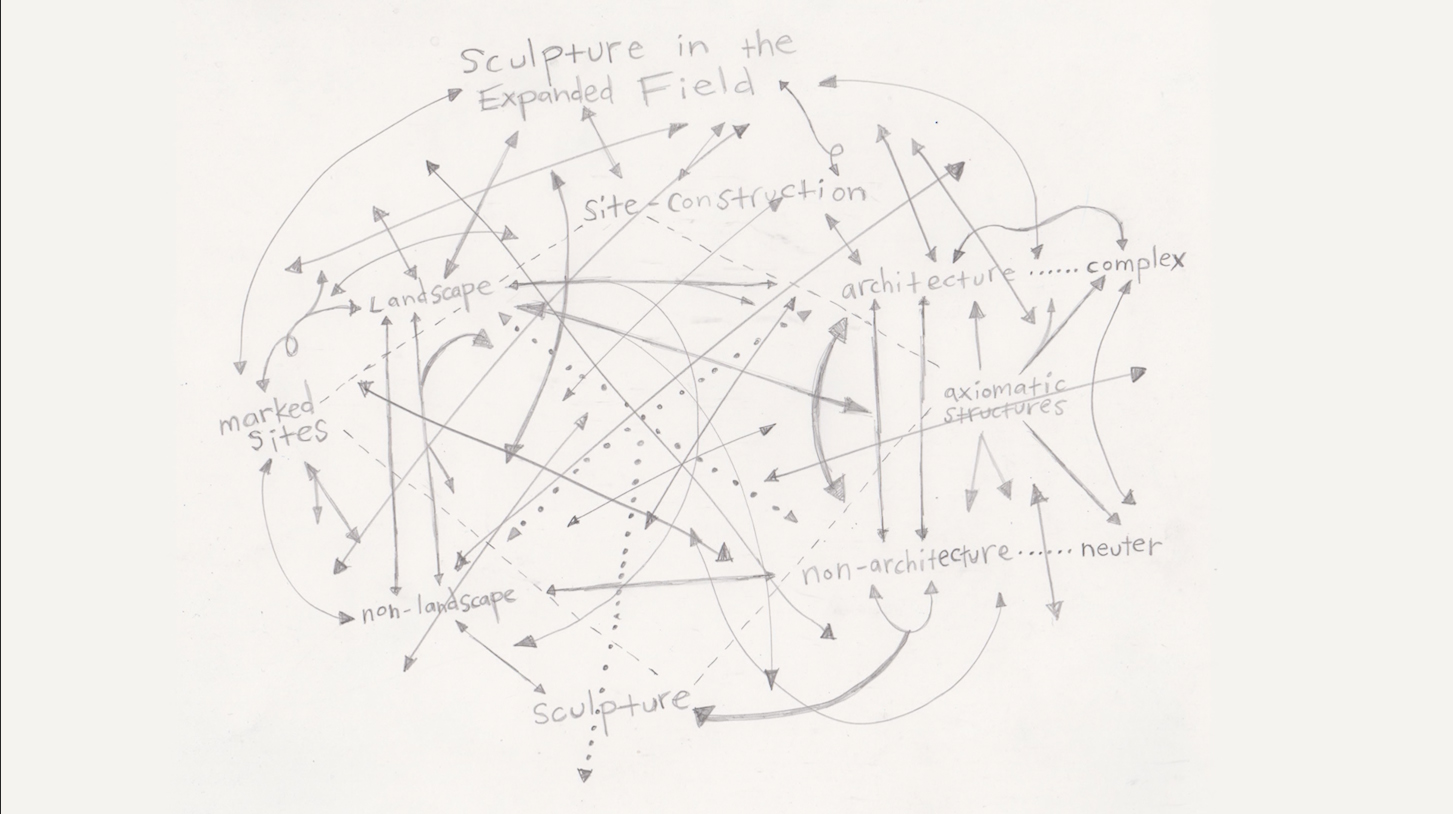 Sculpture in the
Expanded Field
Site-Construction
Landscape
architecture ...... complex
marked
sites
axiomatic
structures
non-landscape
non-architecture ...... neuter
Sculpture